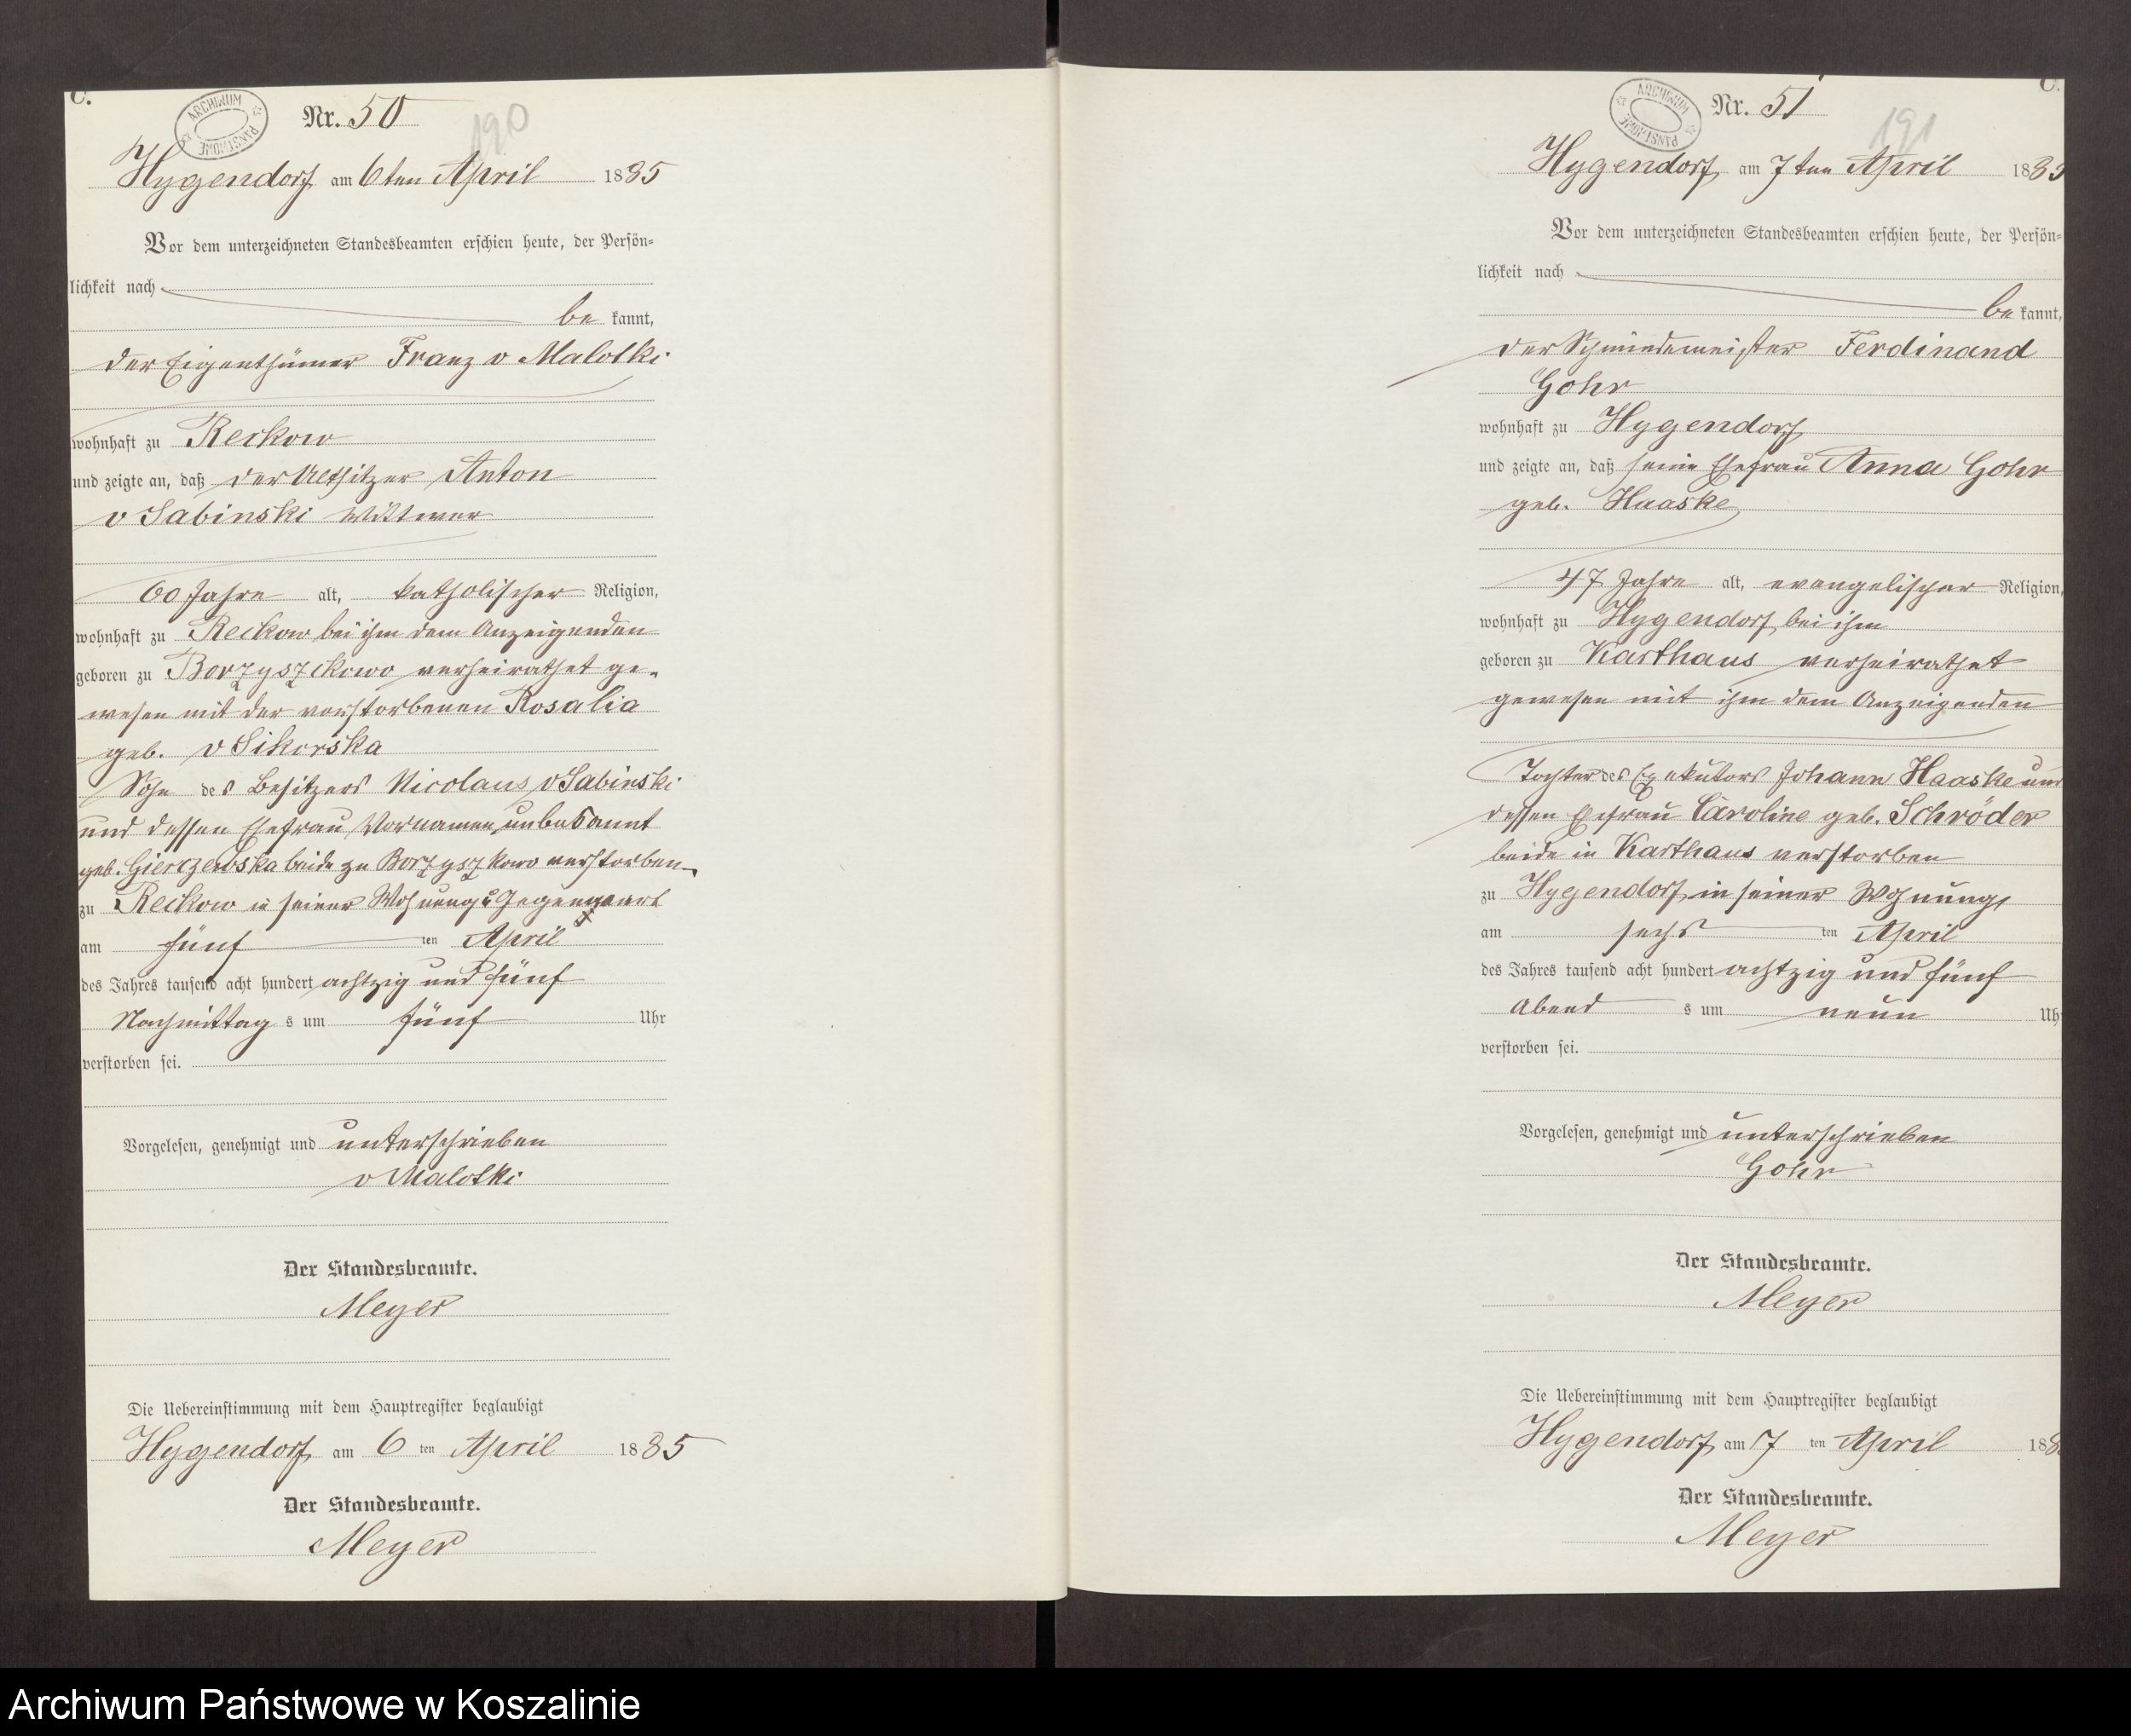 C.
ARCHIWUM PAŃSTWOWE
Nr. 50
190
Hygendorf am 6ten April 1885
Vor dem unterzeichneten Standesbeamten erschien heute, der Persön=
lichkeit nach
be kannt,
der Eigenthümer Franz v Malotki
wohnhaft zu Reckow
und zeigte an, daß der Altsitzer Anton
v Sabinski Wittwer
60 Jahre alt, katholischer Religion,
wohnhaft zu Reckow bei ihm dem Anzeigenden
geboren zu Borzyszkowo verheirathet ge-
wesen mit der verstorbenen Rosalia
geb. v Sikorska
Sohn des Besitzers Nicolaus v Sabinski
und dessen Ehefrau Vornamen unbekannt
geb. beide zu Borzyszkowo verstorben
zu Reckow in seiner Wohnung Gegenwart
am fünf ten April
des Jahres tausend acht hundert achtzig und fünf
Nachmittag s um fünf Uhr
verstorben sei.
Vorgelesen, genehmigt und unterschrieben
v Malotki
Der Standesbeamte.
Meyer
Die Uebereinstimmung mit dem Hauptregister beglaubigt
Hygendorf am 6 ten April 1885
Der Standesbeamte.
Meyer
C.
ARCHIWUM PAŃSTWOWE
Nr. 51
191
Hygendorf am 7ten April 1885
Vor dem unterzeichneten Standesbeamten erschien heute, der Persön=
lichkeit nach
be kannt,
der Schmiedemeister Ferdinand
Gohr
wohnhaft zu Hygendorf
und zeigte an, daß seine Ehefrau Anna Gohr
geb. Haaske
47 Jahre alt, evangelischer Religion,
wohnhaft zu Hygendorf bei ihm
geboren zu Karthaus verheirathet
gewesen mit ihm dem Anzeigenden
Tochter des Exekutors Johann Haaske und
dessen Ehefrau Caroline geb. Schröder
beide in Karthaus verstorben
zu Hygendorf in seiner Wohnung
am sechs ten April
des Jahres tausend acht hundert achtzig und fünf
Abend s um neun Uhr
verstorben sei.
Vorgelesen, genehmigt und unterschrieben
Gohr
Der Standesbeamte.
Meyer
Die Uebereinstimmung mit dem Hauptregister beglaubigt
Hygendorf am 7 ten April 188
Der Standesbeamte.
Meyer
Archiwum Państwowe w Koszalinie